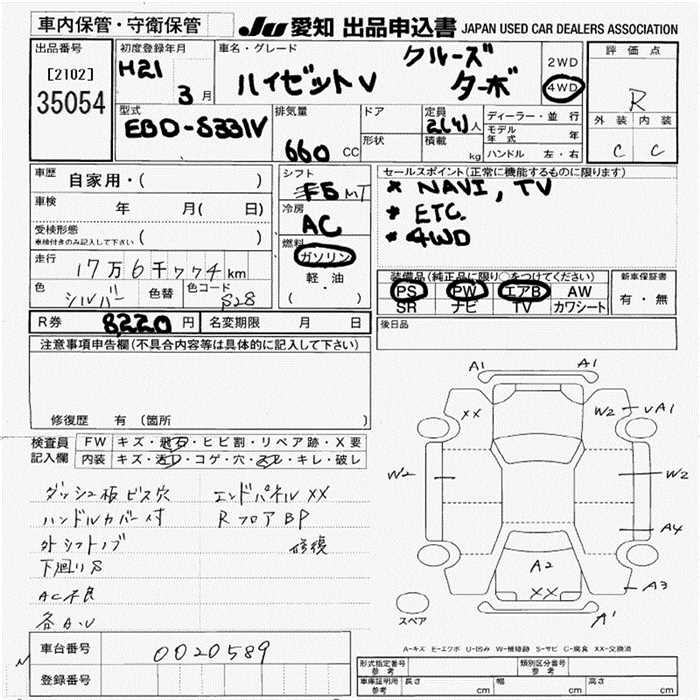 車内保管・守衛保管 JU 愛知 出品申込書 JAPAN USED CAR DEALERS ASSOCIATION
出品番号
[2102]
35054
初度登録年月
H21 3月
車名・グレード
ハイゼットV クルーズ ターボ
2WD
4WD
評価点
R
外装 内装
C C
型式
EBD-S331V
排気量
660 CC
ドア
形状
定員
2(4)人
積載 kg
ディーラー・並行
モデル年式 年
ハンドル 左・右
車歴 自家用・( )
車検 年 月( 日)
受検形態
車検付きのみ記入して下さい ( )
走行 17万6千774km
色 シルバー 色替 色コード S28
シフト
F5 MT
冷房
AC
燃料
ガソリン
軽・油
( )
セールスポイント(正常に機能するものに限ります)
* NAVI, TV
* ETC.
* 4WD
装備品(純正品に限り○をつけてください)
PS PW エアB AW
SR ナビ TV カワシート
新車保証書
有・無
R券 8220円 名変期限 月 日
後日品
注意事項申告欄(不具合内容等は具体的に記入して下さい)
修復歴 有(箇所 )
検査員記入欄
FW キズ・飛石・ヒビ割・リペア跡・X要
内装 キズ・汚レ・コゲ・穴・スレ・キレ・破レ
ダッシュ板ビス穴 エンドパネルXX
ハンドルカバー付 RフロアBP
外シフトノブ 修復
下廻りS
AC不良
各A・U
A1 A1
XX W2 UA1
W2 W2
A4
A2
XX A3
A1
スペア
A-キズ E-エクボ U-凹み W-補修跡 S-サビ C-腐食 XX-交換済
車台番号 0020589
登録番号
形式指定番号 参考
類別区分番号 参考
車庫証明用 参考 長さ cm 幅 cm 高さ cm